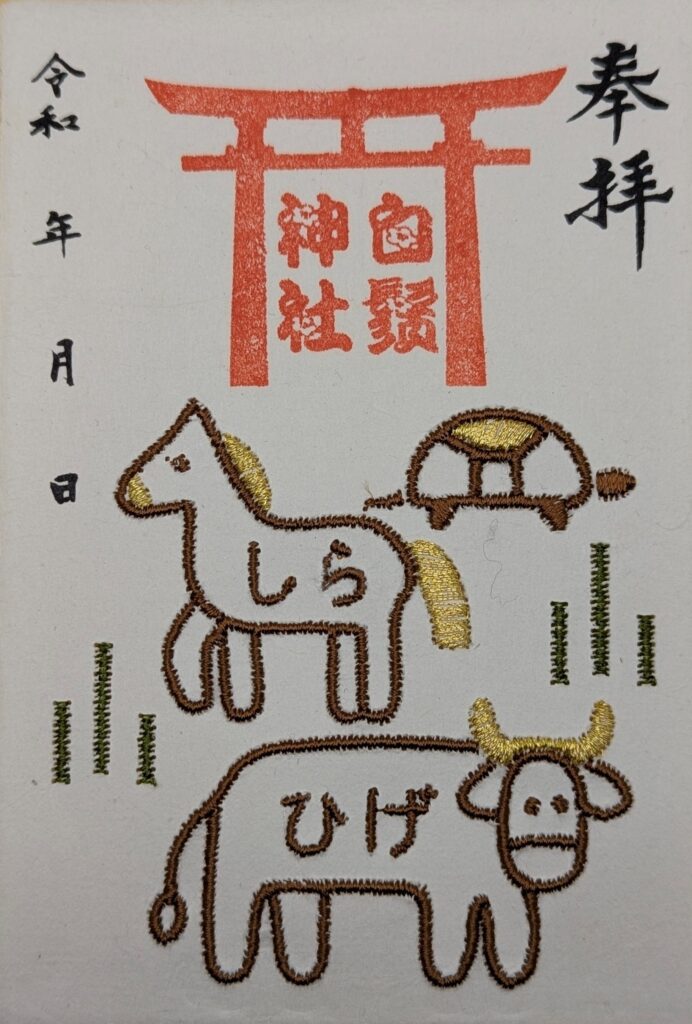 奉拝
白鬚
神社
令和 年 月 日
しら
ひげ